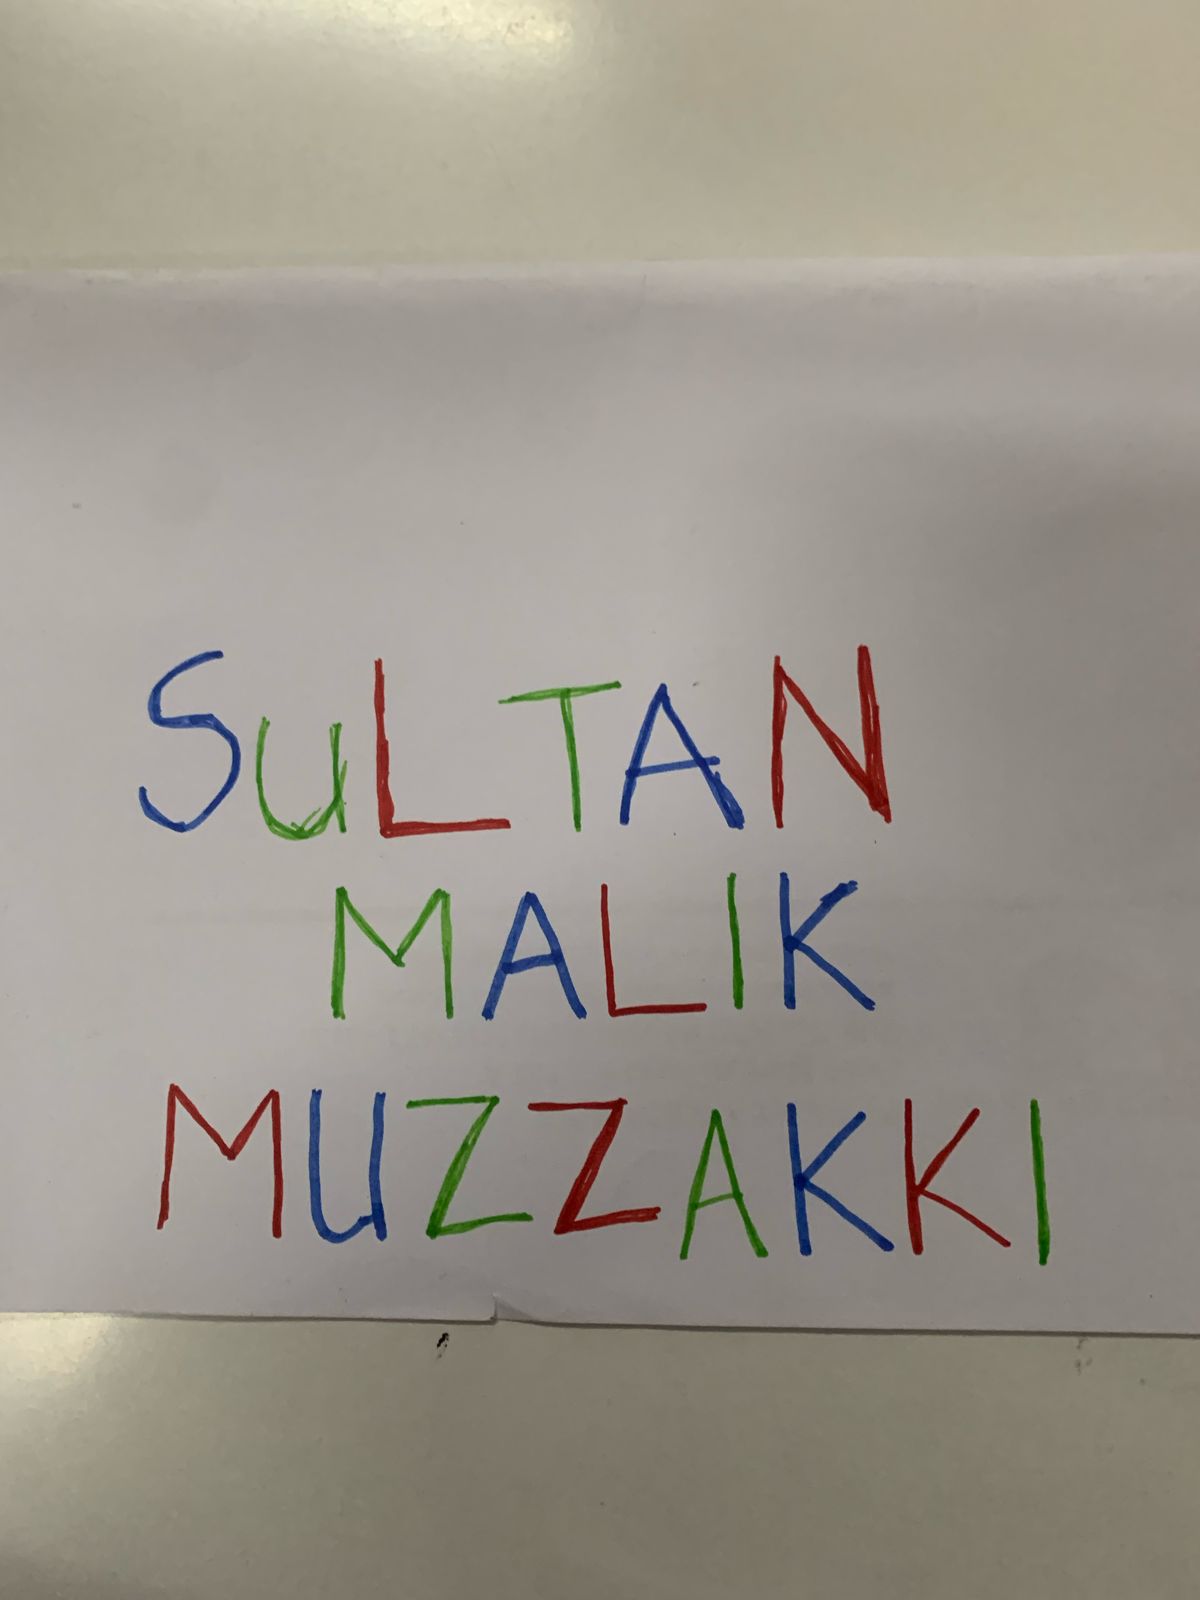 SuLTAN
MALIK
MUZZAKKI